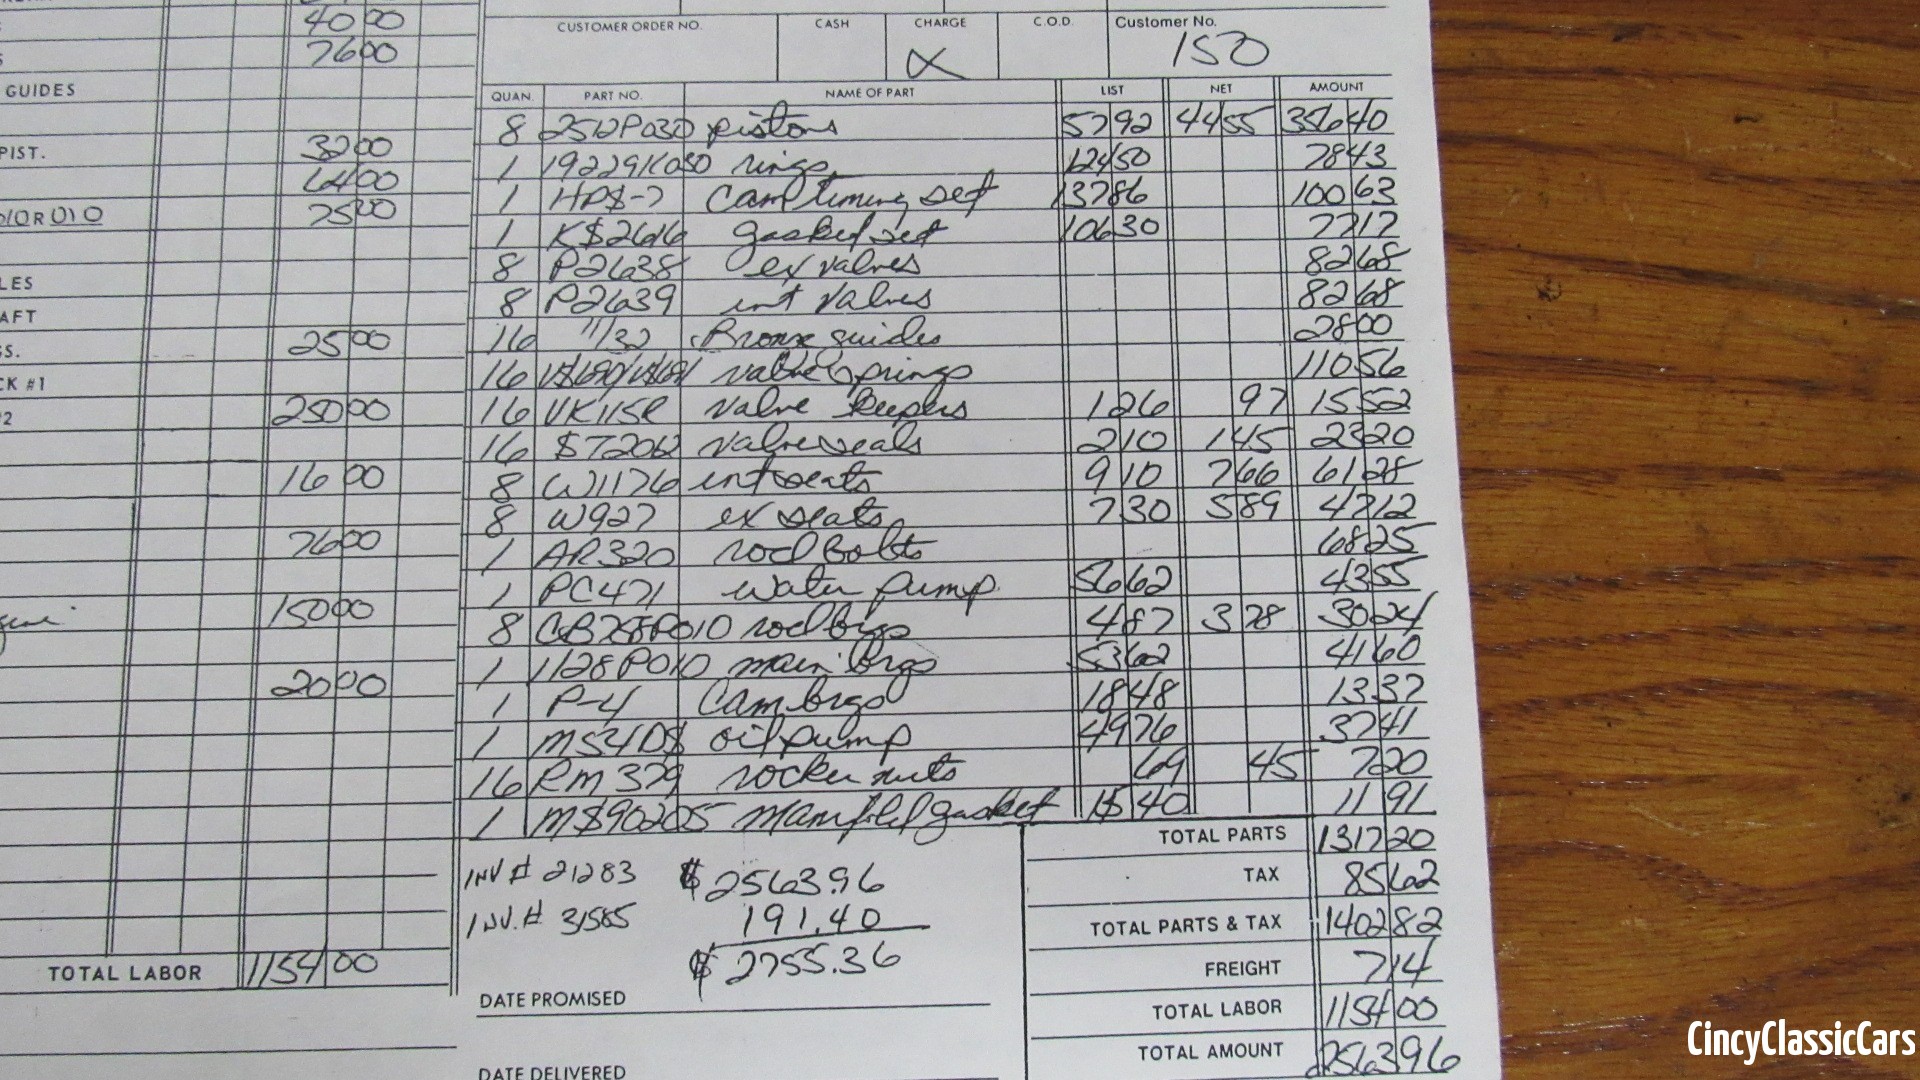 40 00
CUSTOMER ORDER NO. CASH CHARGE C.O.D. Customer No.
76 00 X 150
GUIDES
QUAN. PART NO. NAME OF PART LIST NET AMOUNT
8 2512P030 pistons 57 92 44 55 356 40
PIST. 32 00
1 19229K030 rings 124 50 78 43
64 00
1 HP$-7 Cam timing set 137 86 100 63
010 OR 010 75 00
1 K$2616 gasket set 106 30 77 17
8 P2638 ex valves 82 68
LES
8 P2639 int valves 82 68
AFT
16 11/32 Bronze guides 28 00
GS. 25 00
16 V$690/V$691 valve springs 110 56
CK #1
16 VK115R valve keepers 1 26 97 15 52
#2 250 00
16 $7206 valve seals 2 10 1 45 23 20
16 00
8 W1176 int seats 9 10 7 66 61 28
8 W927 ex seats 7 30 5 89 47 12
76 00
1 AR320 rod bolts 68 25
1 PC471 water pump 56 62 43 55
150 00
8 CB758P010 rod brgs 4 87 3 78 30 24
1 1128P010 main brgs 53 62 41 60
20 00
1 P-4 Cam brgs 18 48 13 37
1 M54D$ oil pump 49 76 37 41
16 RM 379 rocker nuts 69 45 7 20
1 M$90205 manifold gasket 15 40 11 91
TOTAL PARTS 1317 20
INV # 21283 $2563.96
TAX 85 62
INV. # 31585 191.40
TOTAL PARTS & TAX 1402 82
$2755.36
FREIGHT 7 14
TOTAL LABOR 1154 00
DATE PROMISED
TOTAL LABOR 1154 00
TOTAL AMOUNT 2563 96
DATE DELIVERED
CincyClassicCars